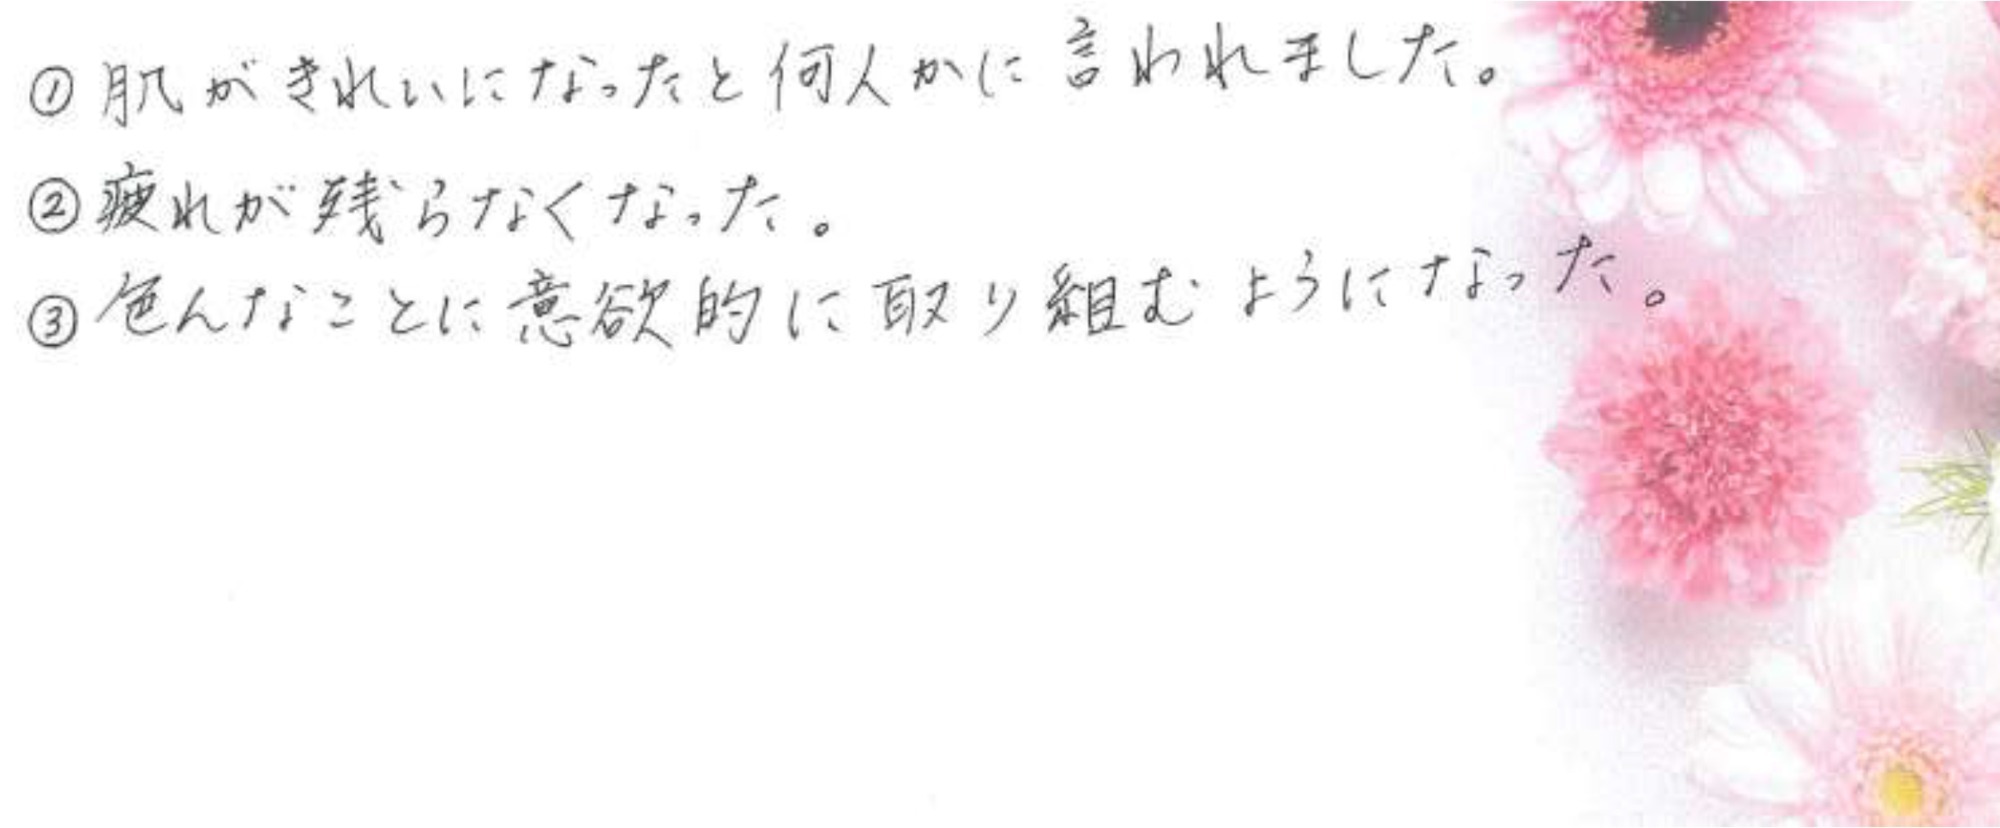 ①肌がきれいになったと何人かに言われました。
②疲れが残らなくなった。
③色んなことに意欲的に取り組むようになった。